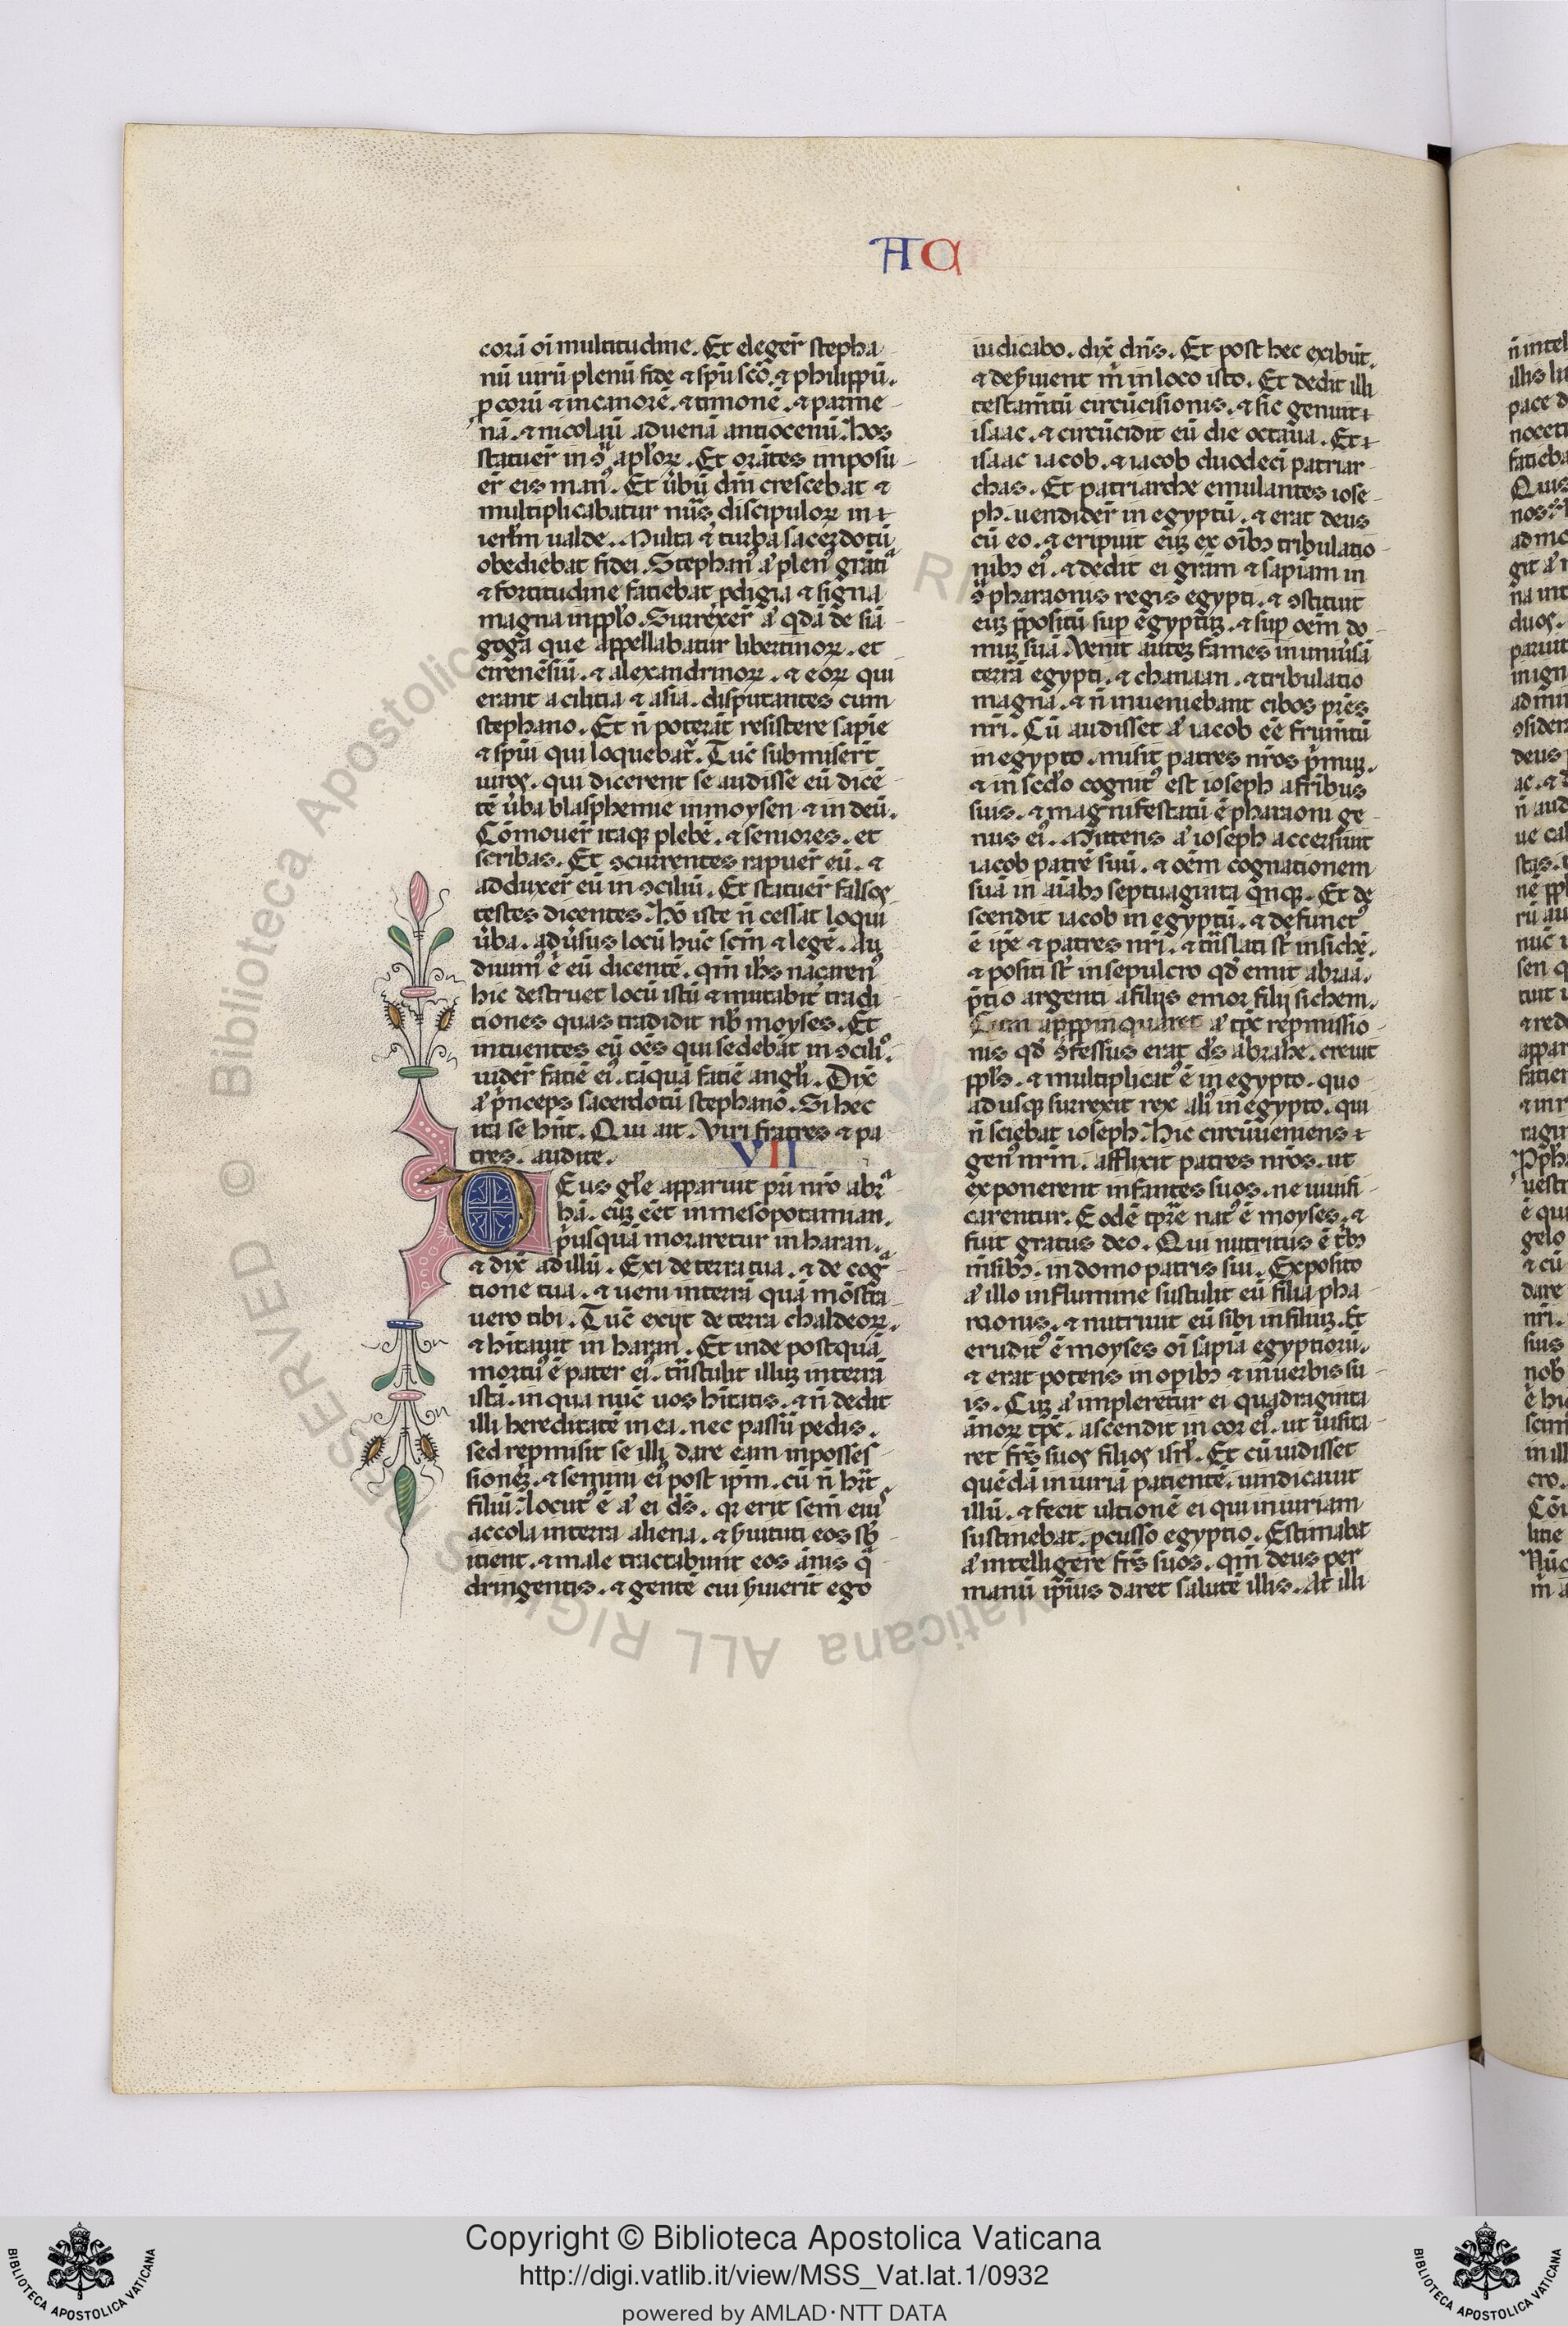 AC
corā oī multitudine. Et elegēr stepha-
nū uirū plenū fide ⁊ spū scō. ⁊ philippū.
p̱corū ⁊ incanorē. ⁊ timonē. ⁊ parme-
nā. ⁊ nicolaū aduenā antiocenū. hos
statuer̄ in ꝯ̄ ap̄lorꝝ. Et orātes imposu-
er̄ eis manꝰ. Et ủbū dn̄i crescebat ⁊
multiplicabatur nūs discipulorꝝ in
ierl̄m ualde. Multa ⁊ turba sacerdotū
obediebat fidei. Stephanꝰ aͧ plenꝰ gratiᵃ
⁊ fortitudine fatiebat ꝓdigia ⁊ signa
magna in pp̄lo. Surrexer̄ aͧ qdā de sia-
gogā que appellabatur libertinorꝝ. et
cirenēsiū. ⁊ alexandrinorꝝ. ⁊ eorꝝ qui
erant a cilitia ⁊ asia. disputantes cum
stephano. Et n̄ poterāt resistere sapie
⁊ spiū qui loquebat̄. Tūc submisert̄
uiros. qui dicerent se audisse eū dicē-
tē ủba blasphemie in moysen ⁊ in deū.
Cōmouer̄ itaqꝫ plebē. ⁊ seniores. et
scribas. Et ꝯcurrentes rapuer̄ eū. ⁊
adduxer̄ eū in ꝯciliū. Et statuer̄ falsos
testes dicentes. Hō iste n̄ cessat loqui
ủba. adủsus locū hūc scm̄ ⁊ legē. Au
diuimꝰ ē eū dicentē. qm̄ ih̄s naçarenꝰ
hic destruet locū istū ⁊ mutabit tradi-
tiones quas tradidit nb̄ moyses. Et
intuentes eū oēs qui sedebāt in ꝯciliꝰ.
uider̄ fatiē eiꝰ. tāquā fatiē angl̄i. Dix̄
aͧ p̄nceps sacerdotū stephano. Si hec
ita se hn̄t. Qui ait. Viri fratres ⁊ pa
tres. audite. VII
Deus gl̄e apparuit pr̄i nr̄o abrᵃ
hā. cuꝫ eēt in mesopotamian.
p̄usquā moraretur in haran.
⁊ dix̄ ad illū. Exi de terra tua. ⁊ de cogᵃ
tione tua. ⁊ ueni in terrā quā mōstra-
uero tibi. Tūc exijt de terra chaldeorꝝ.
⁊ hītauit in haran. Et inde postquā
mortuꝰ ē pater eiꝰ. trn̄stulit illuꝫ in terrā
istā. in qua nūc uos hītatis. ⁊ n̄ dedit
illi hereditatē in ea. nec passū pedis.
sed repmisit se illi dare eam in posses-
sionēꝫ. ⁊ semini eiꝰ post ip̄m. cū n̄ hr̄et
filiū. locutꝰ ē aͧ ei ds̄. qꝛ erit sem̄ eiuꝰ
accola in terra aliena. ⁊ ẜuituti eos sb̄-
itient. ⁊ male tractabunt eos ānis qᵃ
dringentis. ⁊ gentē cui ẜuierit ego
iudicabo. dix̄ dn̄s. Et post hec exibūt.
⁊ deẜuient m̄ in loco isto. Et dedit illi
testam̄tū circūcisionis. ⁊ sic genuit
isaac. ⁊ circūcidit eū die octaua. Et
isaac iacob. ⁊ iacob duodeci patriar-
chas. Et patriarche emulantes iose-
ph. uendider̄ in egyptū. ⁊ erat deus
cū eo. ⁊ eripuit euꝫ ex oībꝫ tribulatio-
nibꝫ eiꝰ. ⁊ dedit ei grām ⁊ sapiam in
ꝯ̄ pharaonis regis egypti. ⁊ ꝯstituit
euꝫ p̄positū sup egyptuꝫ. ⁊ sup oēm do-
muꝫ suā. Venit auteꝫ fames in uniủsā
terrā egypti. ⁊ chanaan. ⁊ tribulatio
magna. ⁊ n̄ inueniebant cibos pr̄es
nr̄i. Cū audisset aͧ iacob eē frum̄tū
in egypto. misit patres nr̄os p̄muꝫ.
⁊ in sec̄do cognitꝰ est ioseph a fr̄ibus
suis. ⁊ magnifestatū ē pharaoni ge-
nus eiꝰ. Mittens aͧ ioseph accersiuit
iacob patrē suū. ⁊ oēm cognationem
suā in aīabꝫ septuaginta qnqꝫ. Et de
scendit iacob in egyptū. ⁊ defunctꝰ
ē ip̄e ⁊ patres nr̄i. ⁊ trn̄slati st̄ in sichē.
⁊ positi st̄ in sepulcro qd̄ emit abraā.
p̄tio argenti a filijs emor filij sichem.
Cum appp̄inquaret aͧ tp̄c repmissio-
nis qd̄ ꝯfessus erat ds̄ abrahe. creuit
pp̄ls. ⁊ multiplicatꝰ ē in egypto. quo
adusqꝫ surrexit rex aliꝰ in egypto. qui
n̄ sciebat ioseph. Hic circūueniens
genꝰ nr̄m. afflixit patres nr̄os. ut
exponerent infantes suos. ne uiuifi-
carentur. Eodē tp̄re natꝰ ē moyses. ⁊
fuit gratus deo. Qui nutritus ē trībꝫ
m̄sibꝫ. in domo patris sui. Exposito
aͧ illo in flumine sustulit eū filia pha-
raonis. ⁊ nutriuit eū sibi in filiuꝫ. Et
eruditꝰ ē moyses oī sapia egyptiorū.
⁊ erat potens in opibꝫ ⁊ in uerbis su
is. Cuꝫ aͧ impleretur ei quadraginta
ānorꝝ tp̄c. ascendit in cor eiꝰ. ut uisita-
ret fr̄s suos filios isrl̄. Et cū uidisset
quēdā iniuriā patientē. uindicauit
illū. ⁊ fecit ultionē ei qui iniuriam
sustinebat. ꝑcusso egyptio. Estimabat
aͧ intelligere fr̄s suos. qm̄ deus per
manū ip̄ius daret salutē illis. At illi
Copyright © Biblioteca Apostolica Vaticana
http://digi.vatlib.it/view/MSS_Vat.lat.1/0932
powered by AMLAD·NTT DATA